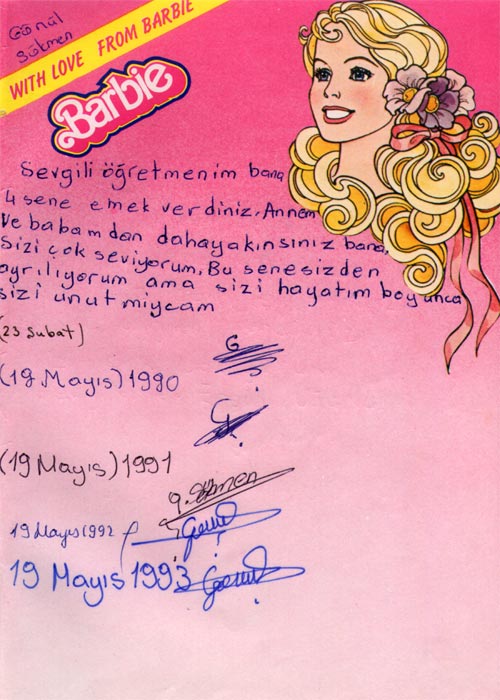 Gönül
Sökmen
WITH LOVE FROM BARBIE
Barbie
Sevgili öğretmenim bana
4 sene emek verdiniz, Annem
ve babamdan dahayakınsınız bana,
sizi çok seviyorum, Bu senesizden
ayrılıyorum ama sizi hayatım boyunca
sizi unutmiycam
(23 Şubat)
G
(19 Mayıs) 1990
G
(19 Mayıs) 1991
g. Sökmen
19 Mayıs 1992
Gönül
19 Mayıs 1993 Gönül